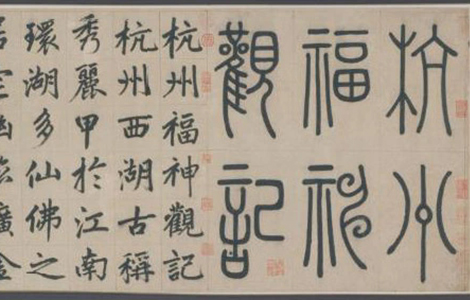 杭州
福神
觀記
杭州福神觀記
杭州西湖古稱
秀麗甲於江南
環湖多仙佛之